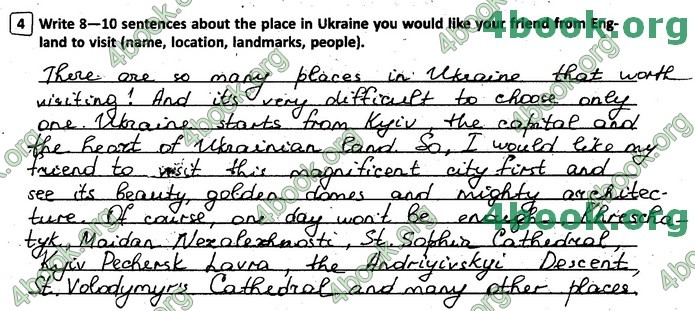 4 Write 8—10 sentences about the place in Ukraine you would like your friend from Eng-
land to visit (name, location, landmarks, people).
There are so many places in Ukraine that worth
visiting! And it's very difficult to choose only
one. Ukraine starts from Kyiv the capital and
the heart of Ukrainian land. So, I would like my
friend to visit this magnificent city first and
see its beauty, golden domes and mighty architec-
ture. Of course, one day won't be enough. Khrescha-
tyk, Maidan Nezalezhnosti, St. Sophia Cathedral,
Kyiv Pechersk Lavra, the Andriyivskyi Descent,
St. Volodymyr's Cathedral and many other places.
4book.org
4book.org
4book.org
4book.org
4book.org
4book.org
4book.org